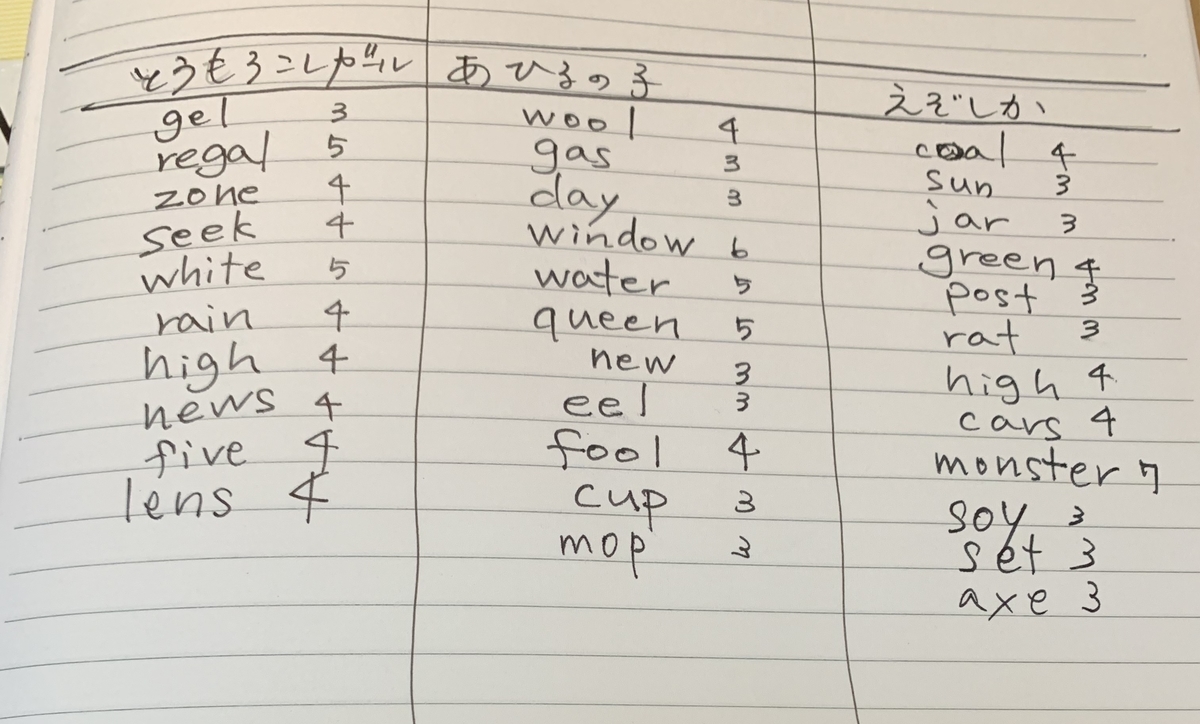 とうもろこしガール
gel 3
regal 5
zone 4
seek 4
white 5
rain 4
high 4
news 4
five 4
lens 4
あひるの子
wool 4
gas 3
day 3
window 6
water 5
queen 5
new 3
eel 3
fool 4
cup 3
mop 3
えぞしか
coal 4
sun 3
jar 3
green 4
post 3
rat 3
high 4
cars 4
monster 7
soy 3
set 3
axe 3